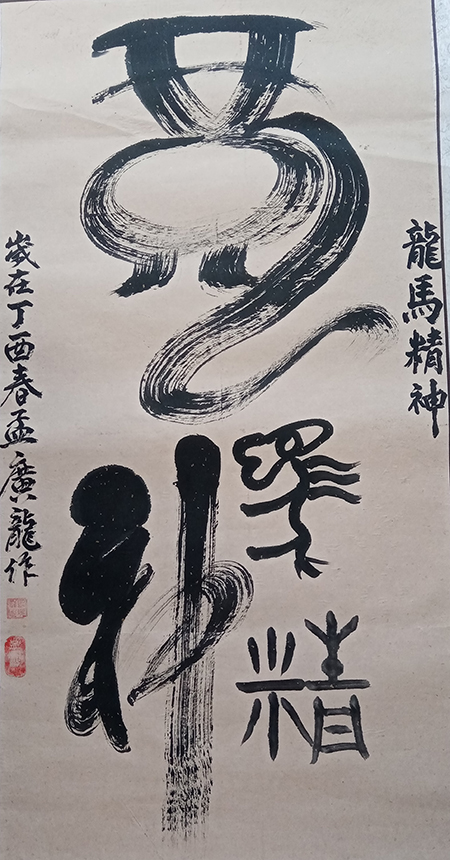 龍馬精神
龍馬精神
歲在丁酉春孟廣龍作